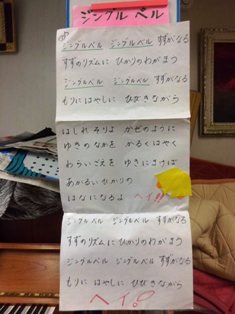 ジングル ベル
ジングルベル ジングルベル すずがなる
すずのリズムに ひかりのわがまう
ジングルベル ジングルベル すずがなる
もりに はやしに ひびきながら
はしれ そりよ かぜのように
ゆきのなかを かるく はやく
わらいごえを ゆきに まけば
あかるい ひかりの
はなに なるよ ヘイ!!
ジングル ベル ジングル ベル すずがなる
すずのリズムに ひかりのわがまう
ジングルベル ジングルベル すずがなる
もりに はやしに ひびきながら
ヘイ!